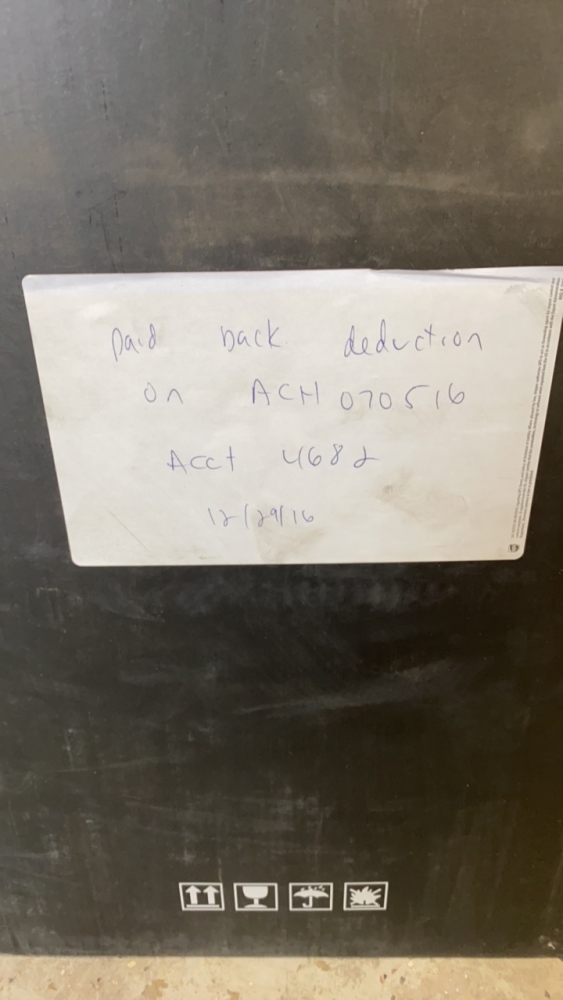 paid back deduction
on ACH 070516
Acct 4682
12/29/16